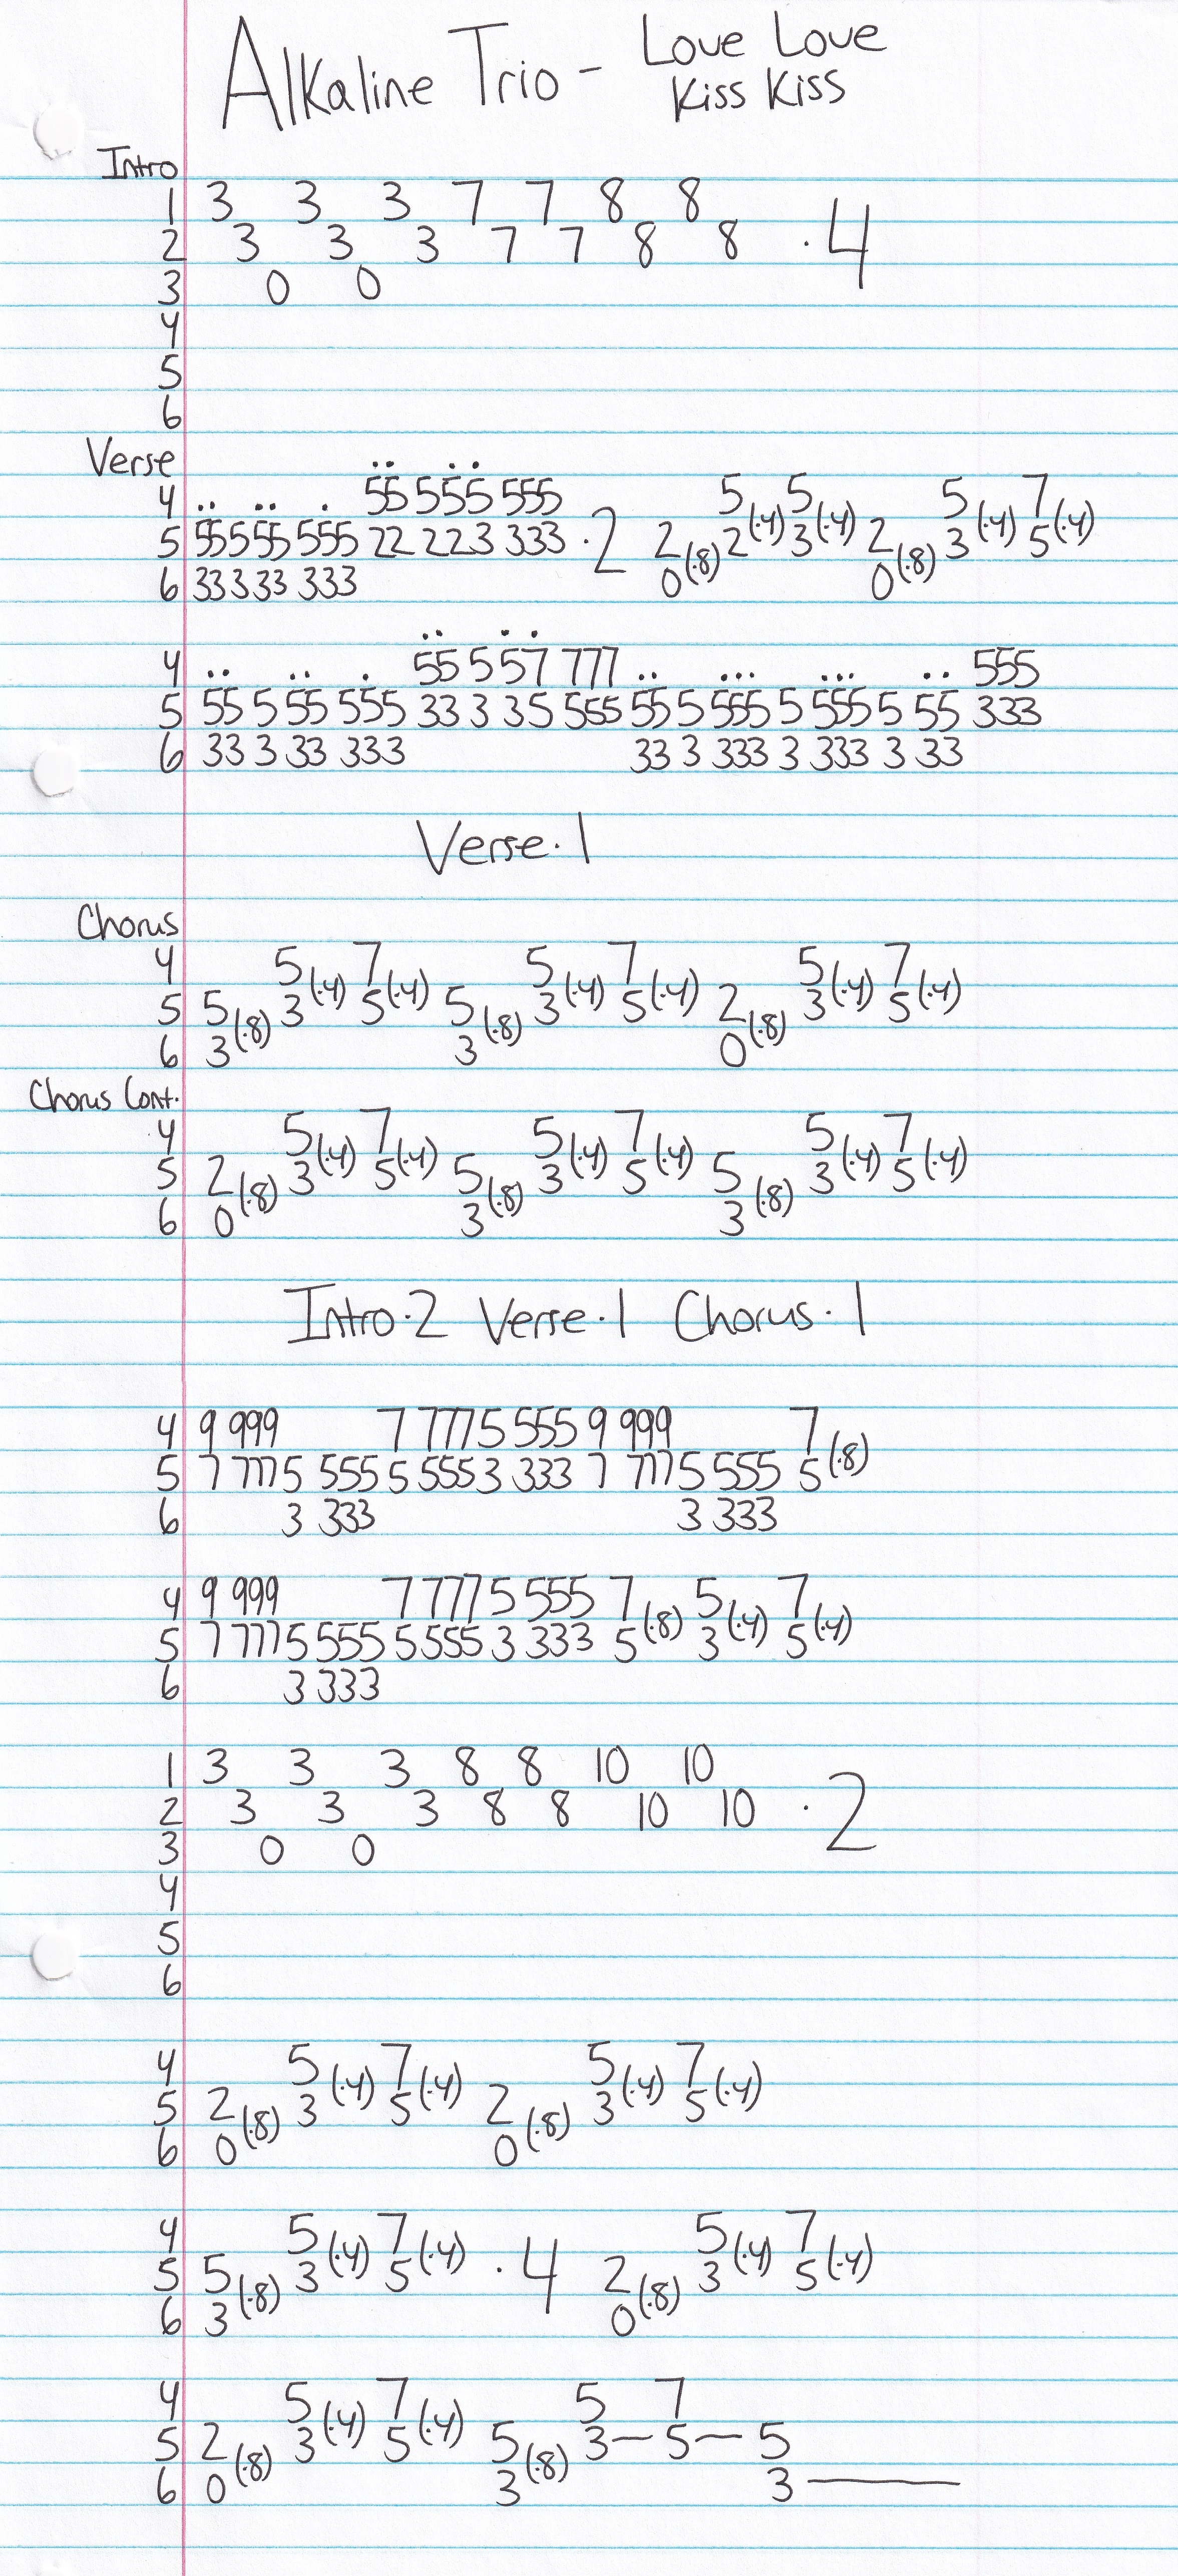 Alkaline Trio - Love Love
Kiss Kiss
Intro
1 3 3 3 7 7 8 8
2 3 3 3 7 7 8 8 · 4
3 0 0
4
5
6
Verse
4 .. .. . 55 555 555 5 5 5 7
5 55555 555 22 223 333 · 2 2(·8) 2(·4) 3(·4) 2(·8) 3(·4) 5(·4)
6 33333 333 0 0
4 .. .. . 55 5 57 777 .. ... ... .. 555
5 55 5 55 555 33 3 35 555 55 5 555 5 555 5 55 333
6 33 3 33 333 33 3 333 3 333 3 33
Verse · 1
Chorus
4 5 7 5 7 5 7
5 5(·8) 3(·4) 5(·4) 5(·8) 3(·4) 5(·4) 2(·8) 3(·4) 5(·4)
6 3 3 0
Chorus Cont.
4 5 7 5 7 5 7
5 2(·8) 3(·4) 5(·4) 5(·8) 3(·4) 5(·4) 5(·8) 3(·4) 5(·4)
6 0 3 3
Intro · 2 Verse · 1 Chorus · 1
4 9 999 7 777 5 555 9 999 7
5 7 777 5 555 5 555 3 333 7 777 5 555 5(·8)
6 3 333 3 333
4 9 999 7 777 5 555 7 5 7
5 7 777 5 555 5 555 3 333 5(·8) 3(·4) 5(·4)
6 3 333
1 3 3 3 8 8 10 10
2 3 3 3 8 8 10 10 · 2
3 0 0
4
5
6
4 5 7 5 7
5 2(·8) 3(·4) 5(·4) 2(·8) 3(·4) 5(·4)
6 0 0
4 5 7 5 7
5 5(·8) 3(·4) 5(·4) · 4 2(·8) 3(·4) 5(·4)
6 3 0
4 5 7 5 7
5 2(·8) 3(·4) 5(·4) 5(·8) 3 — 5 — 5
6 0 3 3 —